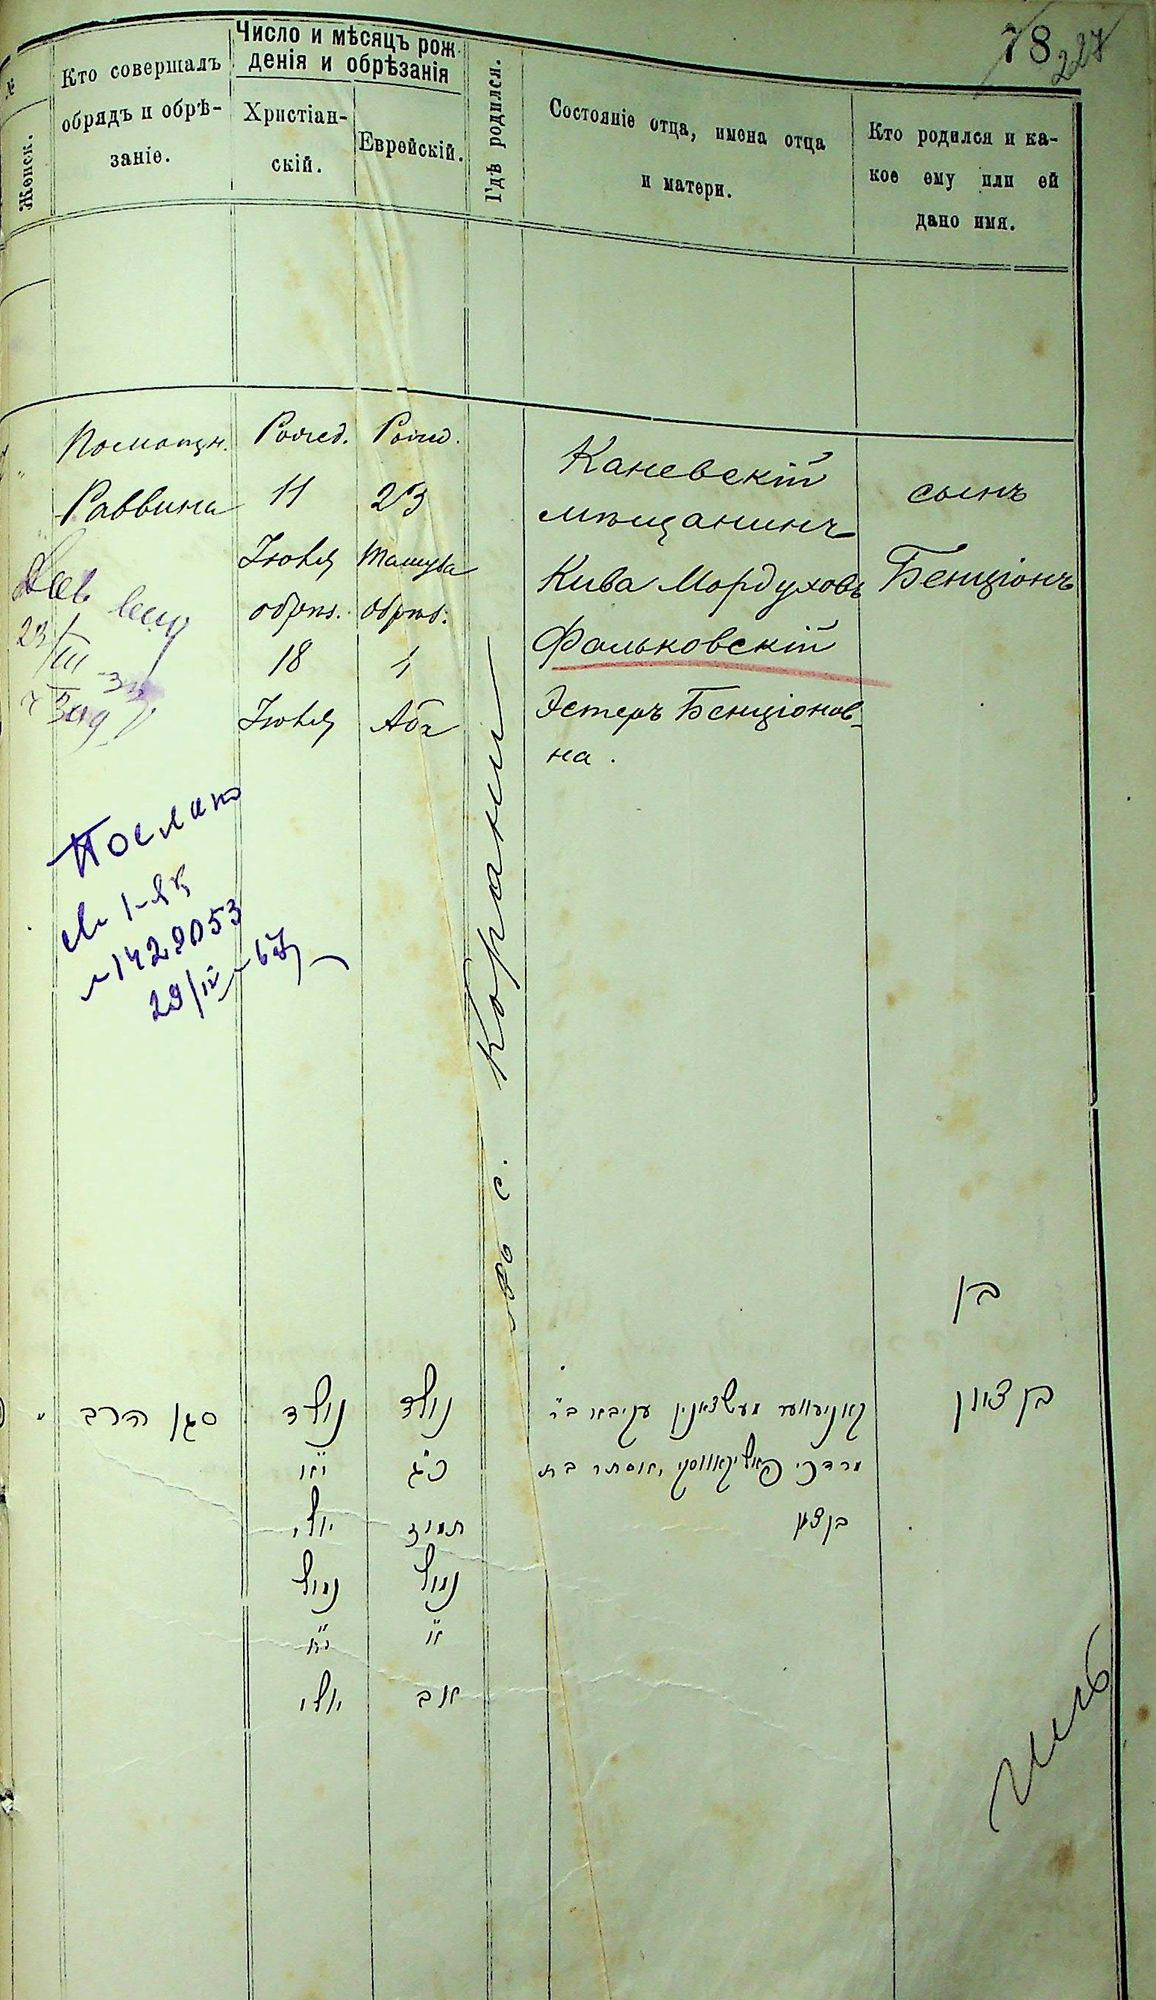 78
227
Женск.
Кто совершалъ
обрядъ и обрѣ-
заніе.
Число и мѣсяцъ рож-
денія и обрѣзанія
Христіан-
скій.
Еврейскій.
Гдѣ родился.
Состояніе отца, имена отца
и матери.
Кто родился и ка-
кое ему или ей
дано имя.
Помощн.
Раввина
Рожд.
11
Іюля
обрѣз.
18
Іюля
Рожд.
23
Тамуза
обрѣз.
1
Аба
въ с. Кораніи
Каневскій
мѣщанинъ
Кива Мордуховъ
Фальковскій
Эстеръ Бенціонов-
на.
сынъ
Бенціонъ
23/III
Послано
1429053
29/IV
סגן הרב
נולד
יולי
נימול
יולי
נולד
כ"ג
תמוז
נימול
א'
אב
קאניעווער מעשצאנין עקיבא ב"ר
מרדכי פאליקאווסקי, אסתר בת
בן ציון
בן
בן ציון